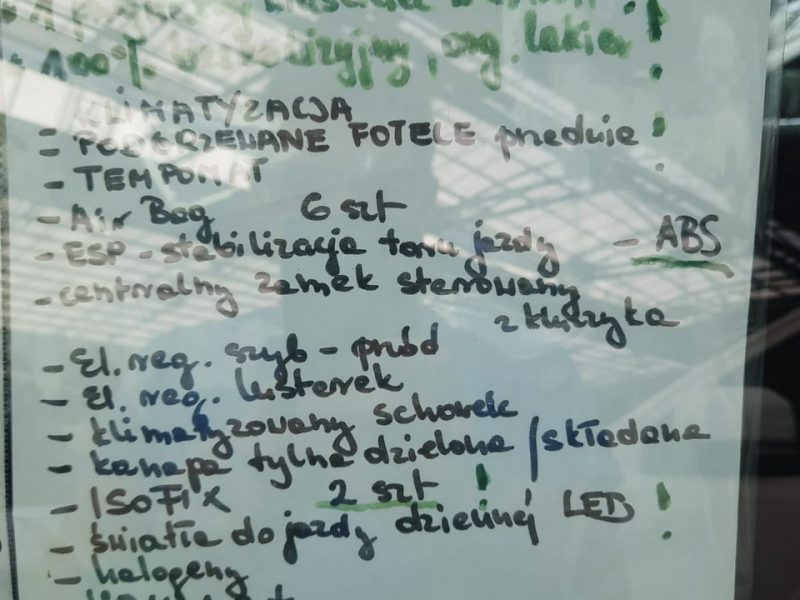 100% bezwypadkowy, org. lakier
KLIMATYZACJA
- PODGRZEWANE FOTELE przednie !
- TEMPOMAT
- Air Bag 6 szt
- ESP - stabilizacja toru jazdy - ABS
- centralny zamek sterowany
z kluczyka
- El. reg. szyb - przód
- El. reg. lusterek
- klimatyzowany schowek
- kanapa tylna dzielona / składana
- ISOFIX 2 szt !
- światła do jazdy dziennej LED !
- halogeny